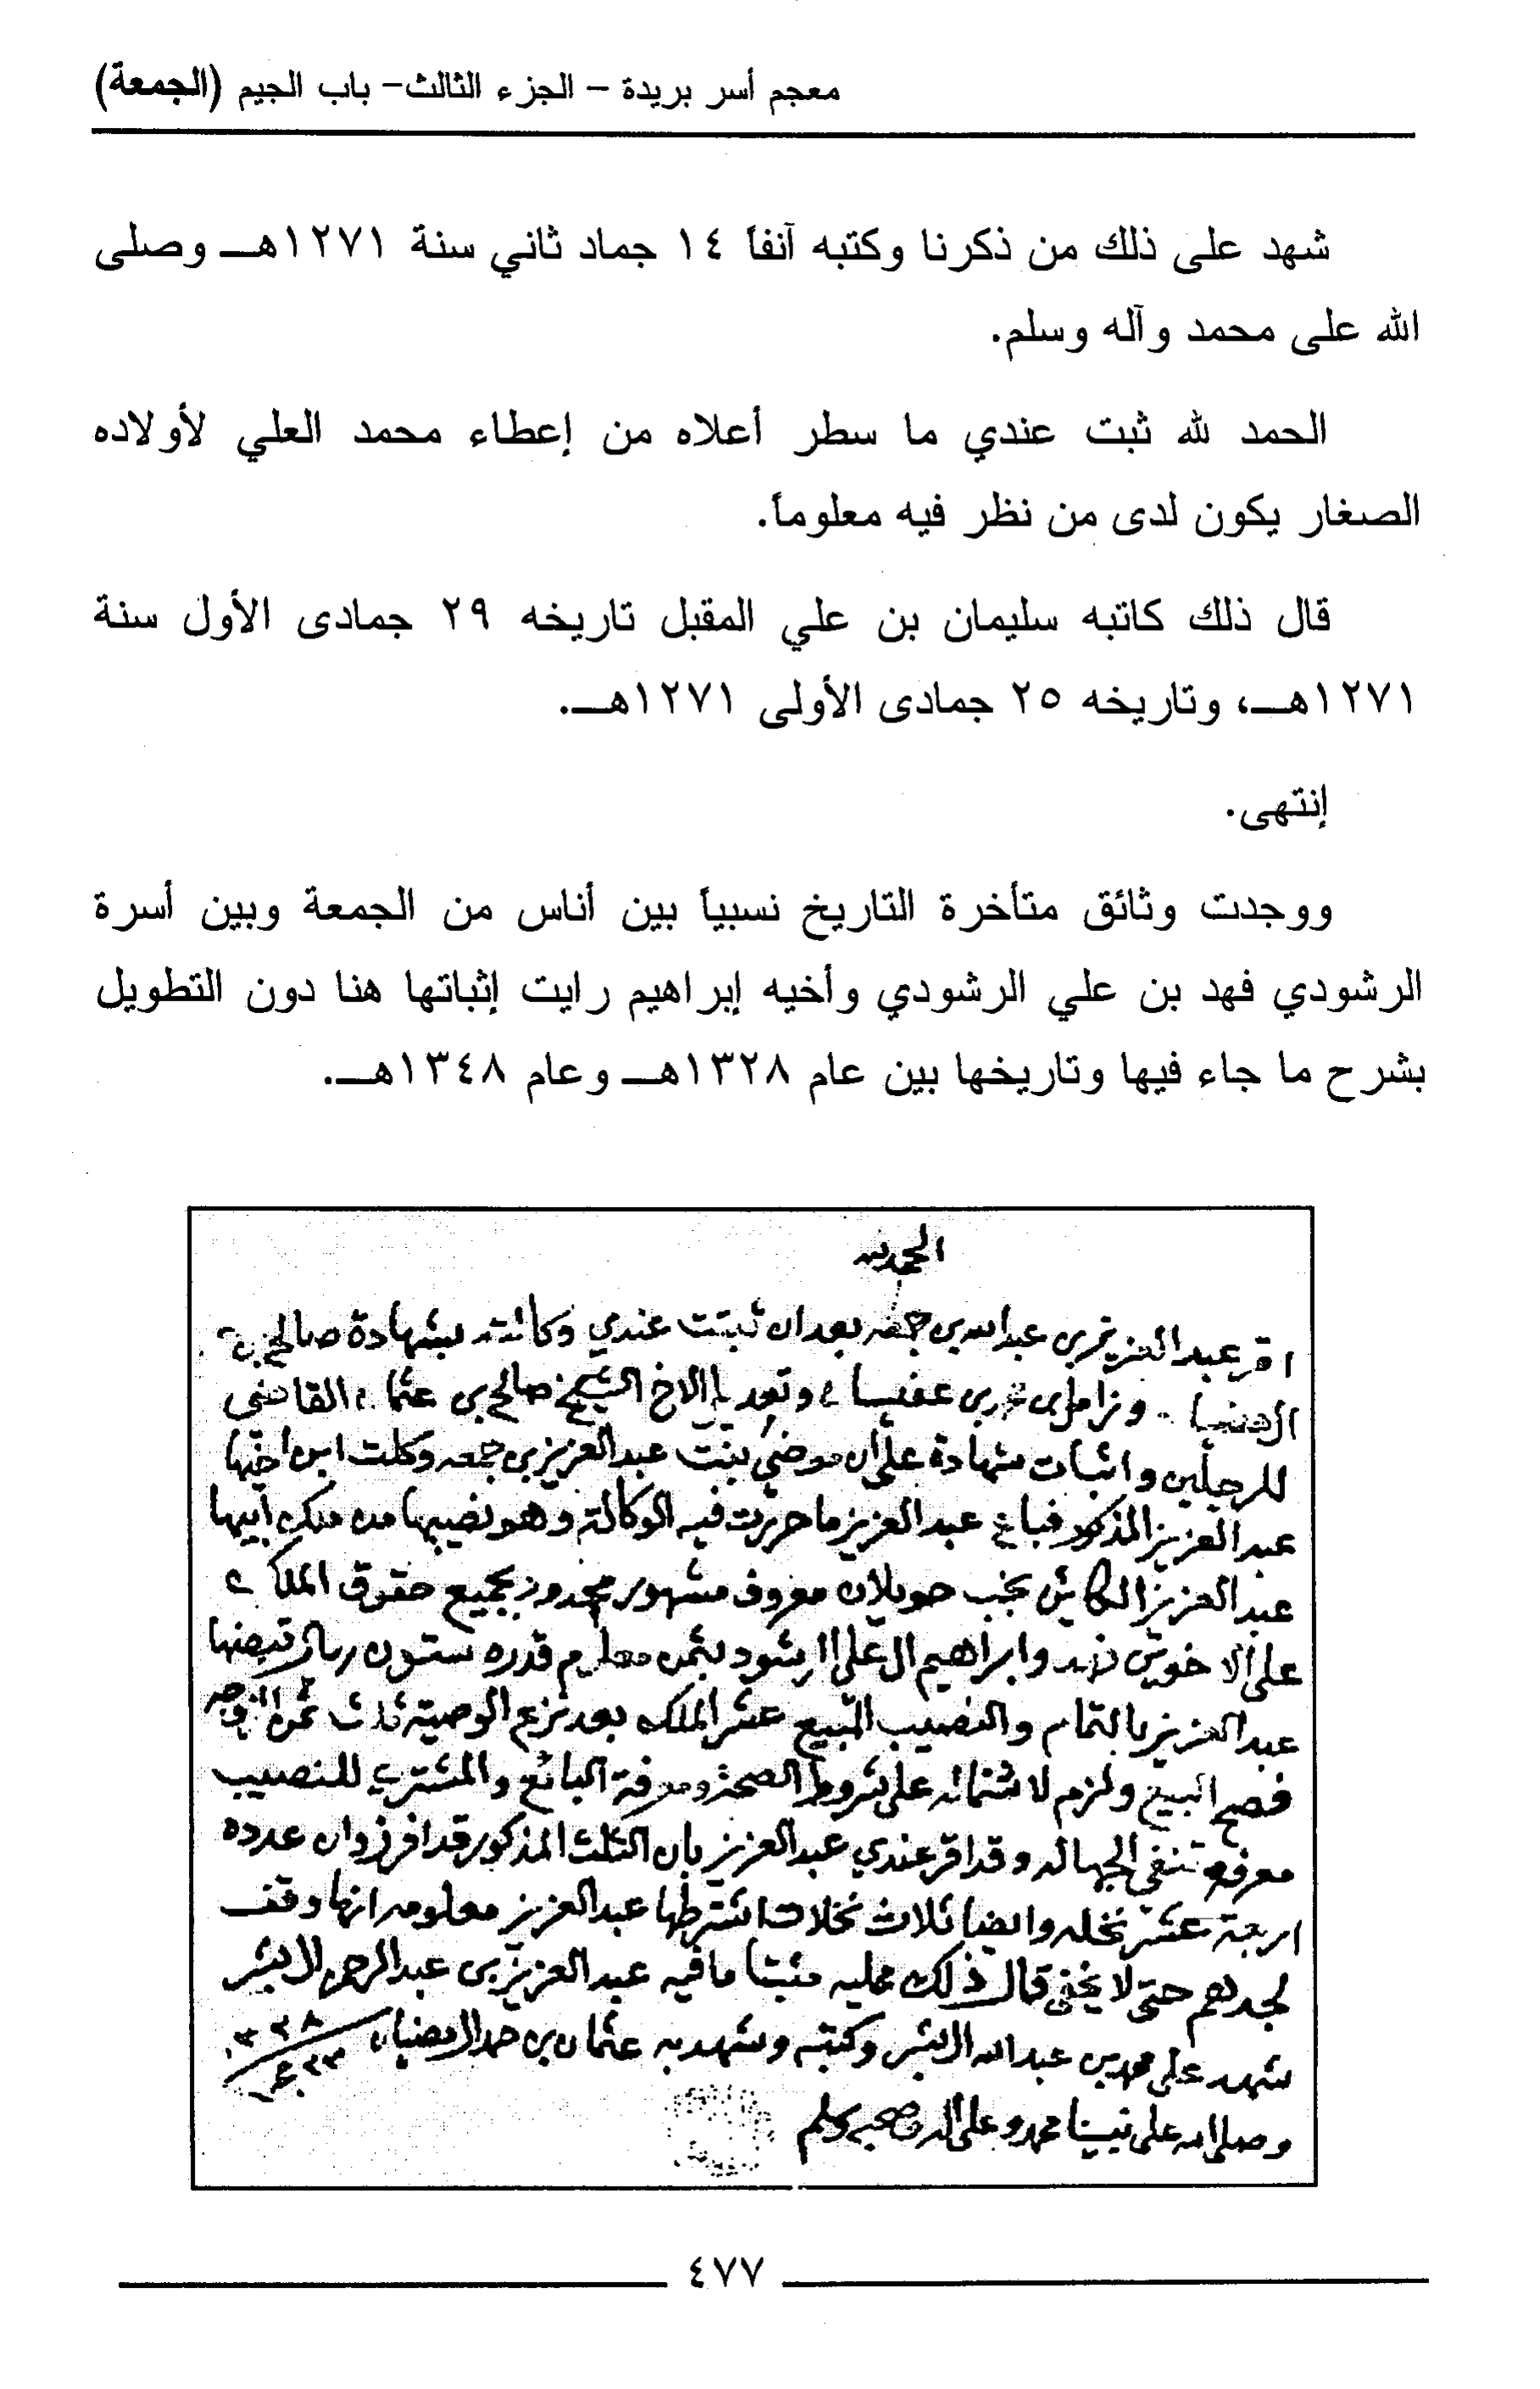 معجم أسر بريدة – الجزء الثالث– باب الجيم (الجمعة)
شهد على ذلك من ذكرنا وكتبه آنفاً ١٤ جماد ثاني سنة ١٢٧١هــ وصلى
الله على محمد وآله وسلم.
الحمد لله ثبت عندي ما سطر أعلاه من إعطاء محمد العلي لأولاده
الصغار يكون لدى من نظر فيه معلوماً.
قال ذلك كاتبه سليمان بن علي المقبل تاريخه ٢٩ جمادى الأول سنة
١٢٧١هــ، وتاريخه ٢٥ جمادى الأولى ١٢٧١هــ.
إنتهى.
ووجدت وثائق متأخرة التاريخ نسبياً بين أناس من الجمعة وبين أسرة
الرشودي فهد بن علي الرشودي وأخيه إبراهيم رايت إثباتها هنا دون التطويل
بشرح ما جاء فيها وتاريخها بين عام ١٣٢٨هــ وعام ١٣٤٨هــ.
الحمد لله
اقر عبدالعزيز بن عبدالله بن جمعه بعد ان ثبتت عندي وكالته بشهادة صالح بن
وتعديل الاخ الشيخ صالح بن عثمان القاضي
للرجلين واثبات شهادة على ان موضي بنت عبدالعزيز بن جمعه وكلت ابن اخيها
عبدالعزيز المذكور فباع عبدالعزيز ما حررت فيه الوكالة وهو نصيبها من ملك أبيها
عبدالعزيز الكاين بخب حويلان معروف مشهور محدود بجميع حقوق الملك
على الاخوين فهد وابراهيم ال علي الرشود بثمن معلوم قدره ستون ريال قبضها
عبدالعزيز بالتمام والنصيب المبيع عشر الملك بعد نزع الوصية ثلاث
فصح البيع ولزم لاشتماله على شروط الصحة ومعرفة البائع والمشتري للنصيب
معرفة تنفي الجهاله وقد اقر عندي عبدالعزيز بان الثلث المذكور قد افرز وان عدده
اربعة عشر نخله وايضا ثلاث نخلات اشترطها عبدالعزيز معلومه انها وقف
لجدهم حتى لا يخفى قال ذلك ممليه مثبتا ما فيه عبدالعزيز بن عبدالرحمن ال بشر
شهد على محمد بن عبدالله ال بشر وكتبه وشهد به عثمان بن حمد ال مضيان
وصلى الله على نبينا محمد وعلى اله وصحبه وسلم
٤٧٧